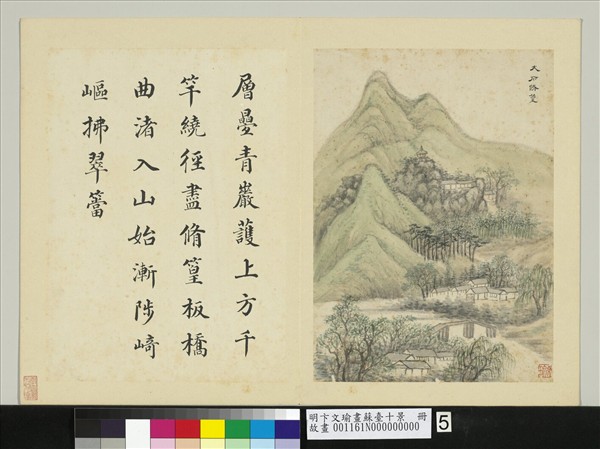 大石
層疊青巖護上方千
竿繞徑盡脩篁板橋
曲渚入山始漸陟崎
嶇拂翠簹
明卞文瑜畫蘇臺十景 冊
故畫 001161N000000000
5